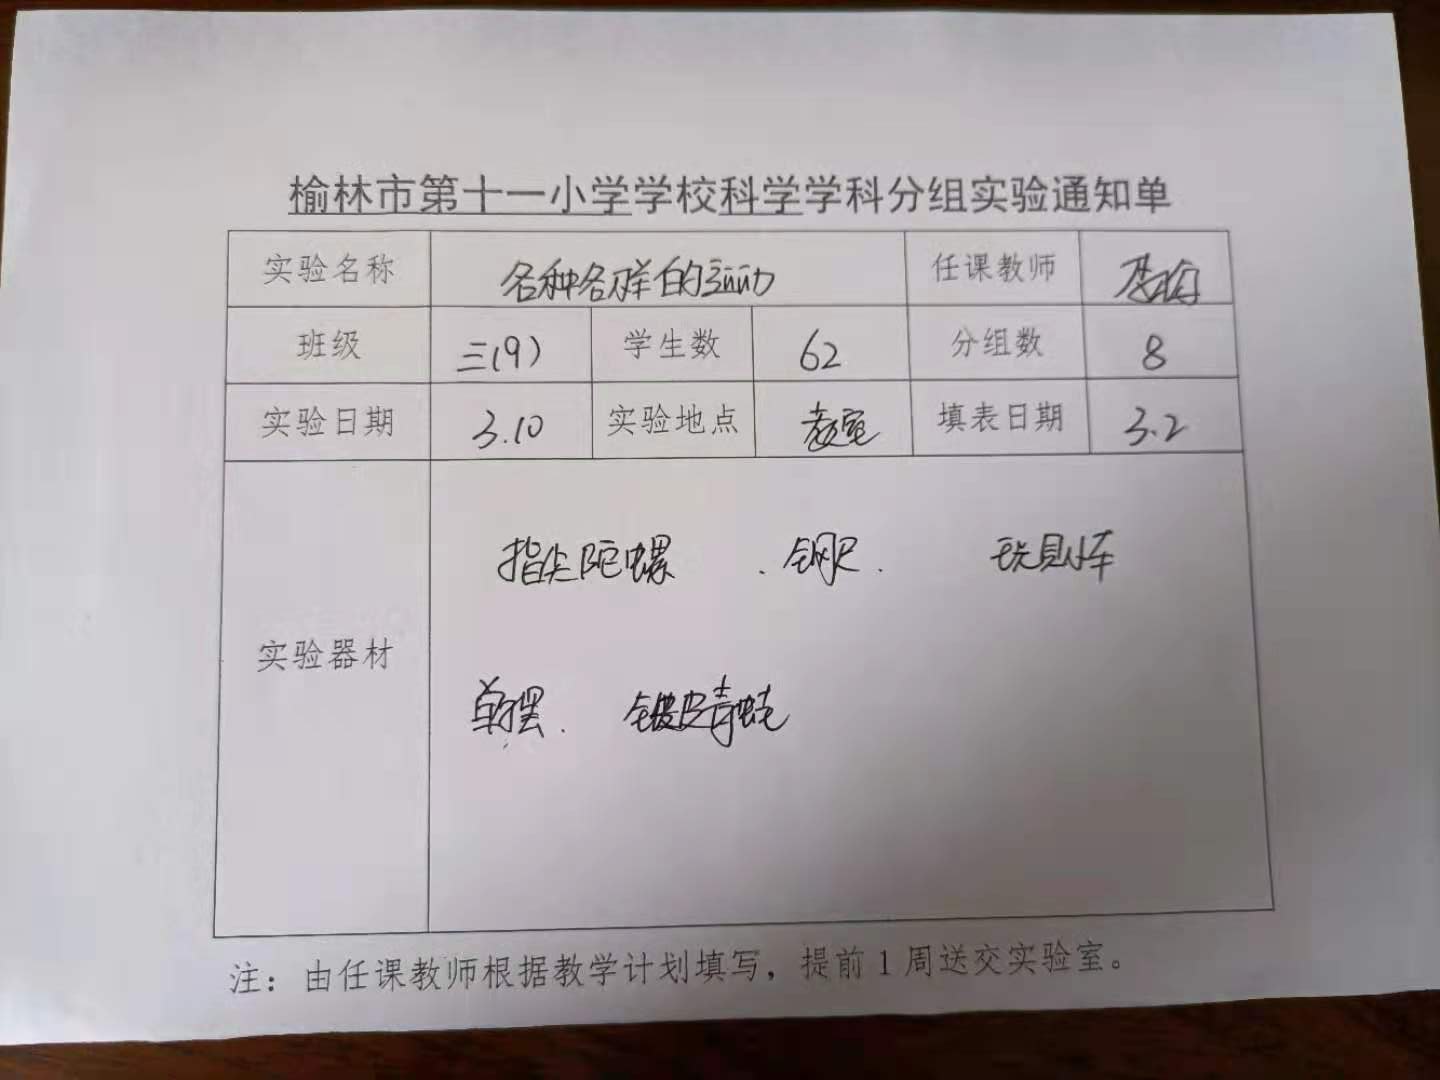 榆林市第十一小学学校科学学科分组实验通知单
实验名称 各种各样的运动 任课教师
班级 三(9) 学生数 62 分组数 8
实验日期 3.10 实验地点 教室 填表日期 3.2
指尖陀螺 . 钢尺. 玩具小车
实验器材
单摆. 铁皮青蛙
注：由任课教师根据教学计划填写，提前1周送交实验室。